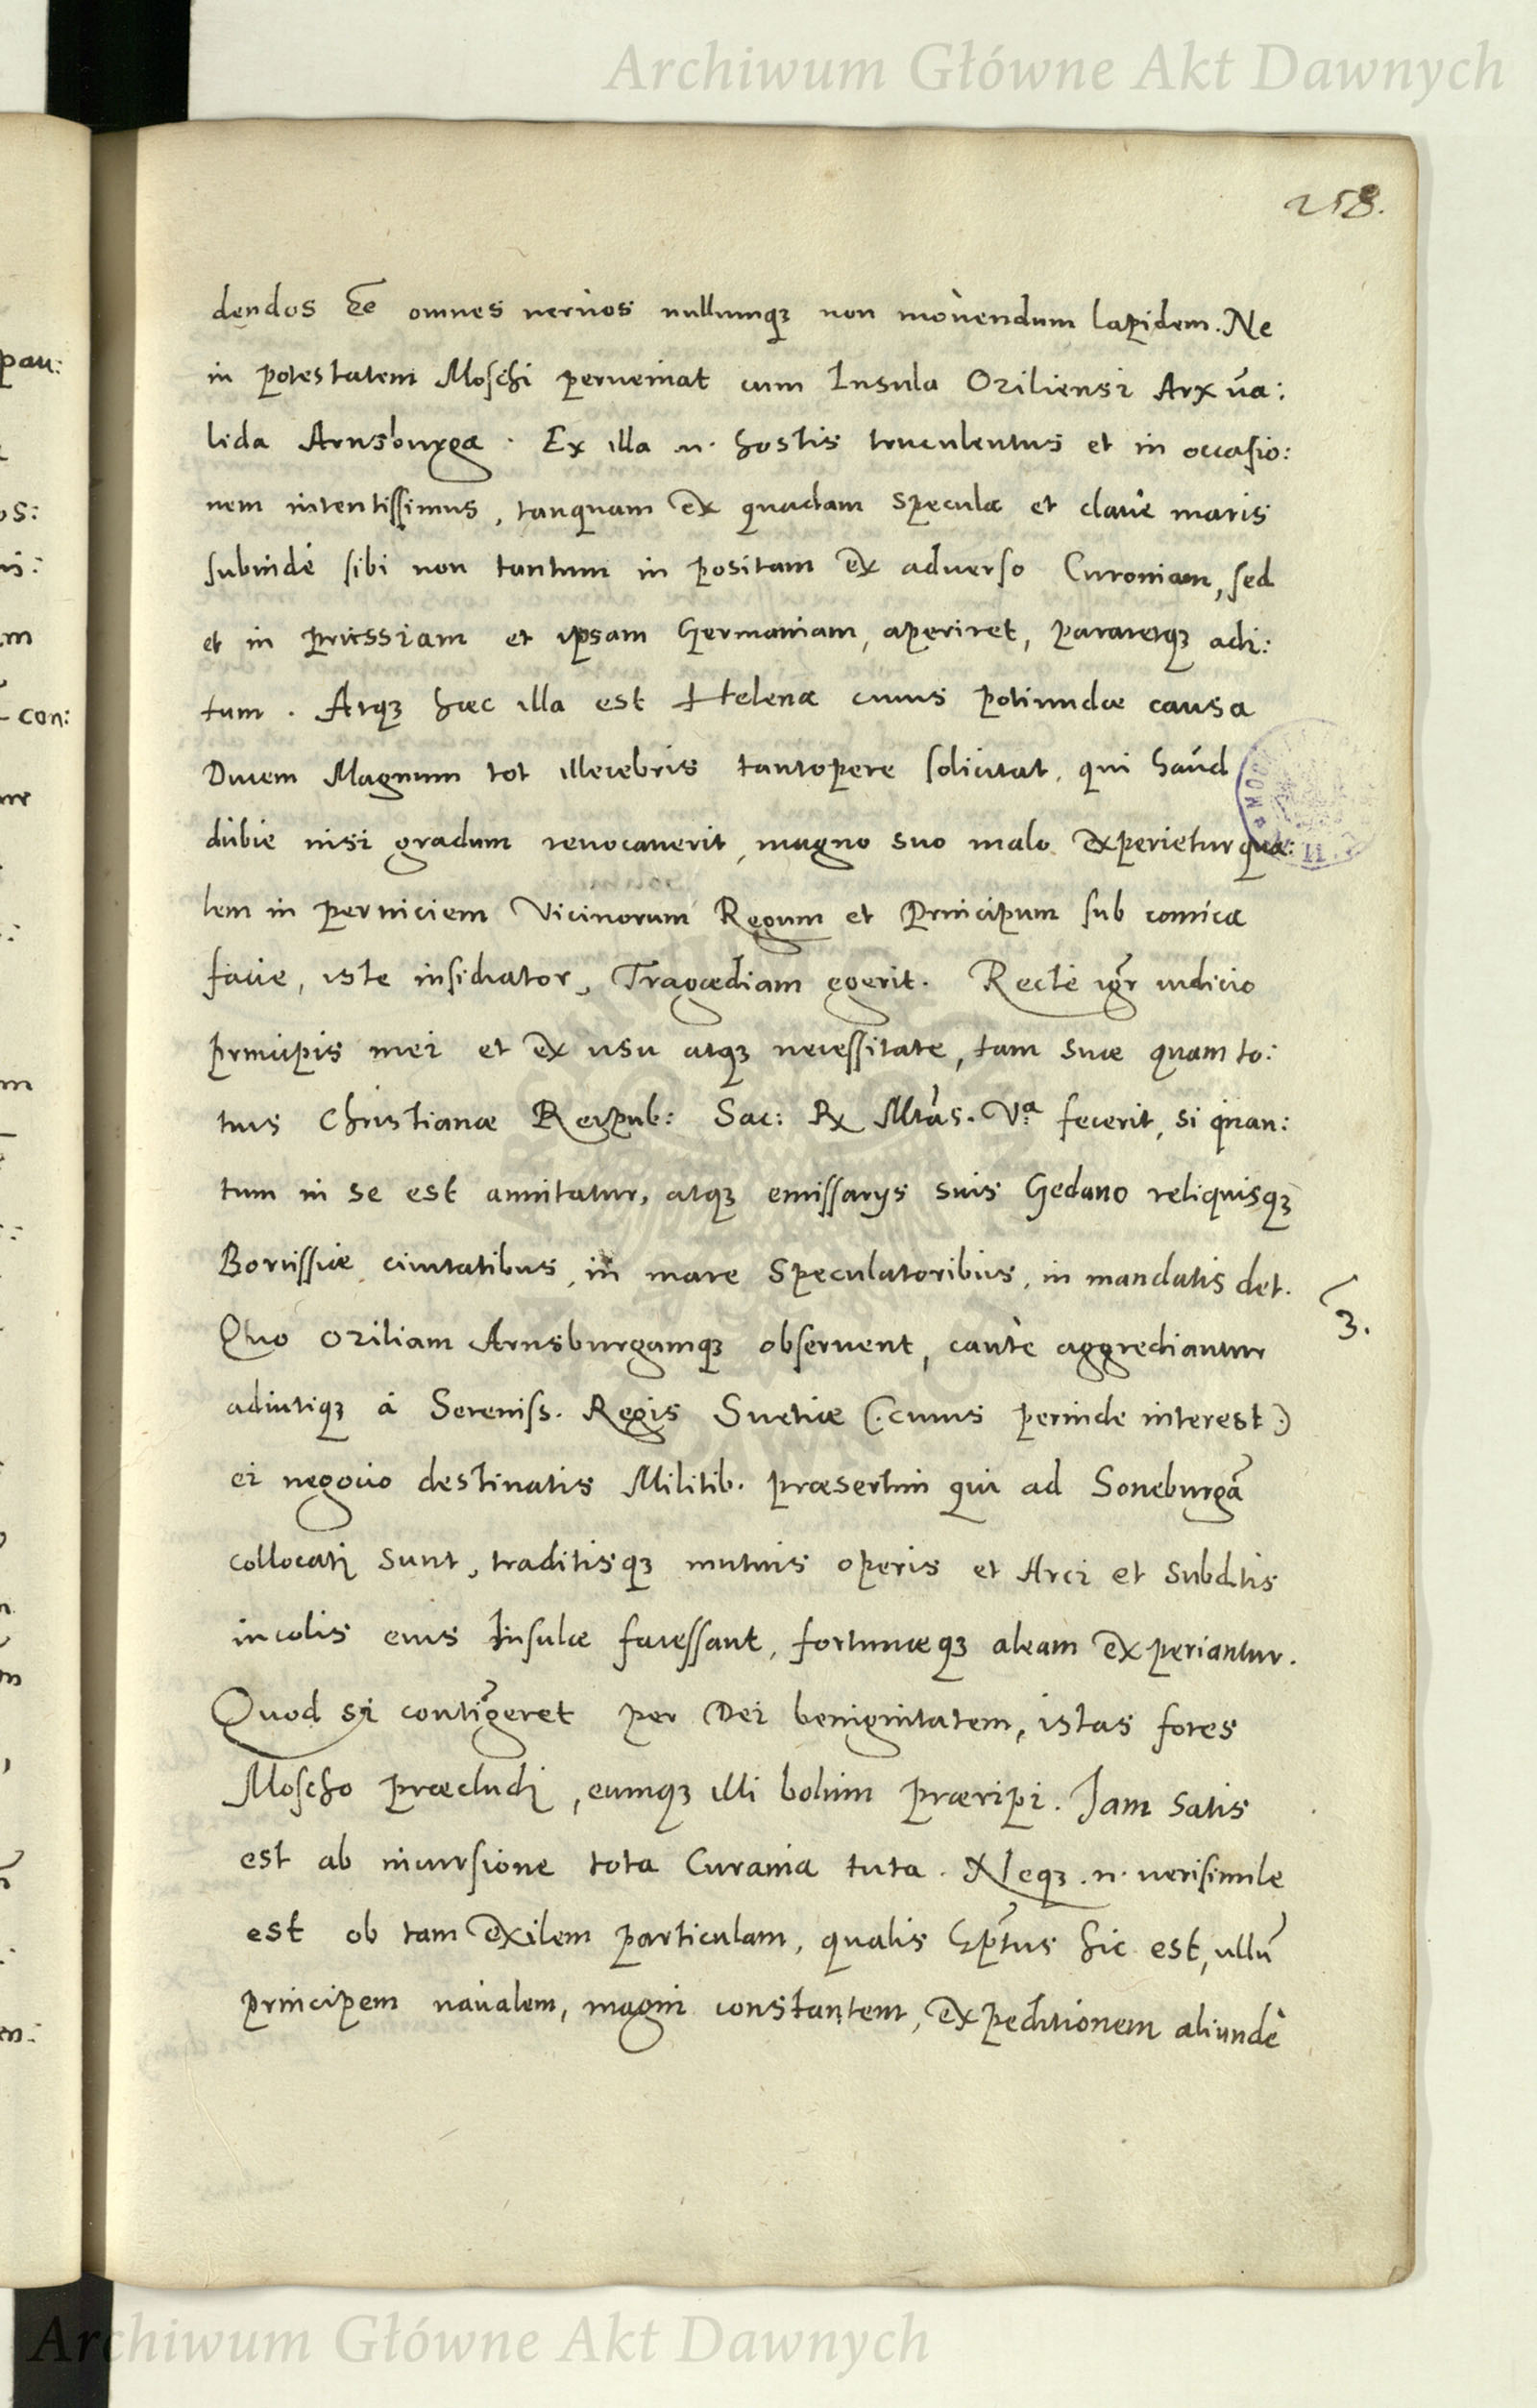 Archiwum Główne Akt Dawnych
258.
dendos ẽe omnes neruos nullumqꝫ non mouendum lapidem. Ne
in potestatem Moschi perueniat cum Insula Oziliensi Arx va:
lida Arnsburga. Ex illa .n. hostis truculentus et in occasio:
nem intentissimus, tanquam ex quadam specula et claue maris
subinde sibi non tantum in positam ex aduerso Curoniam, sed
et in prussiam et ipsam Germaniam, aperiret, pararetqꝫ adi:
tum. Atqꝫ haec illa est Helena cuius potiundae causa
Ducem Magnum tot illecebris tantopere solicitat, qui haud
dubie nisi gradum reuocauerit, magno suo malo experietur qua:
lem in perniciem Vicinorum Regum et Principum sub comica
facie, iste insidiator, Tragoediam egerit. Recte igr iudicio
principis mei et ex usu atqꝫ necessitate, tam suae quam to:
tius Christianae Reipub: Sac: Rx Mtas. Vª fecerit, si quan:
tum in se est annitatur, atqꝫ emissarijs suis Gedano reliquisqꝫ
Borussiae ciuitatibus, in mare speculatoribus, in mandatis det.
3.
Quo oziliam Arnsburgamqꝫ obseruent, caute aggrediantur
adiutiqꝫ à Sereniss. Regis Suetiae (:cuius perinde interest:)
ei negocio destinatis Militib. praesertim qui ad Soneburgã
collocati sunt, traditisqꝫ mutuis operis et Arci et subditis
incolis eius Insulae facessant, fortunaeqꝫ aleam experiantur.
Quod si contigeret per Dei benignitatem, istas fores
Moscho praecludi, eumqꝫ illi bolum praeripi. Jam satis
est ab incursione tota Curania tuta. Neqꝫ .n. uerisimile
est ob tam exilem particulam, qualis hic est, ullũ
principem naualem, magni constantem, expeditionem aliunde
pau:
os:
con:
Archiwum Główne Akt Dawnych